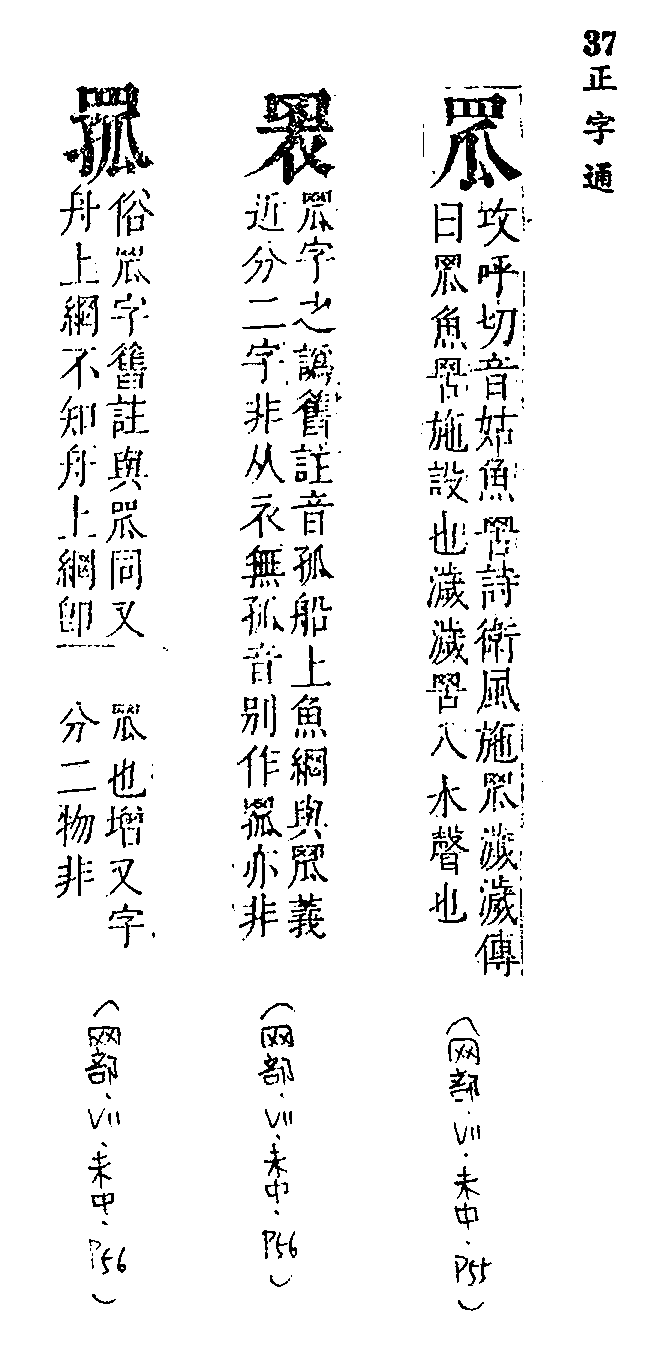 37 正字通
罛
攻呼切音姑魚罟詩衛風施罛濊濊傳
曰罛魚罟施設也濊濊罟入水聲也
(网部·VII·未中·P55)
罛字之譌舊註音孤船上魚網與罛義
近分二字非从衣無孤音別作亦非
(网部·VII·未中·P56)
俗罛字舊註與罛同又
舟上網不知舟上網卽
罛也增又字
分二物非
(网部·VII·未中·P56)